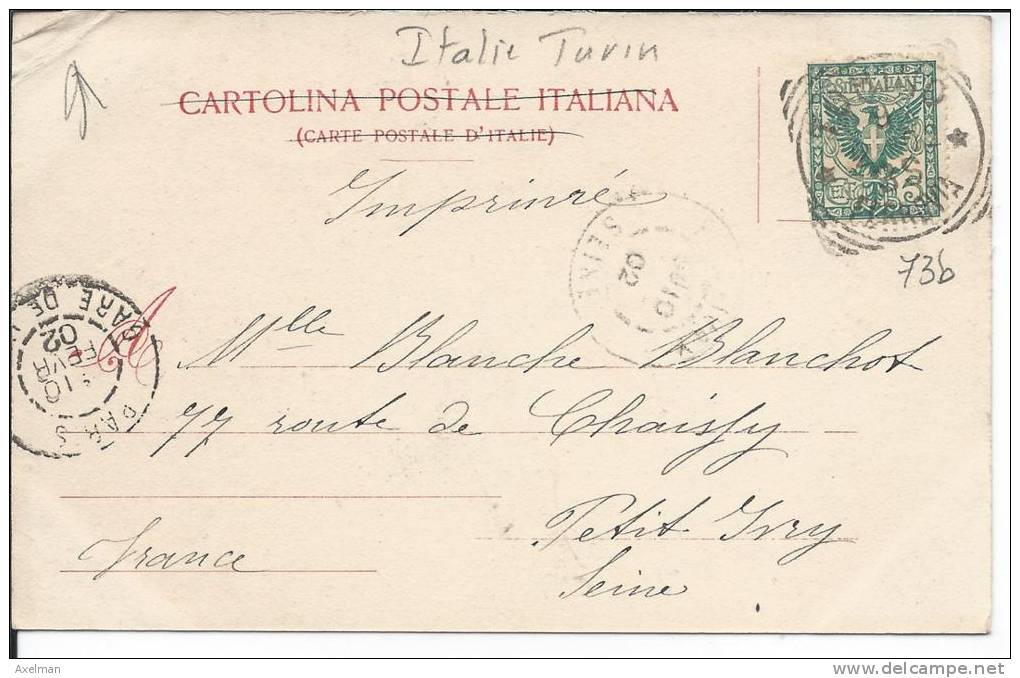 Italie Turin
CARTOLINA POSTALE ITALIANA
(CARTE POSTALE D'ITALIE)
Imprimé
POSTE ITALIANE
5
73b
SEINE
02
PARIS
GARE DE
10
FEVR
02
A
Mlle Blanche Blanchot
77 route de Choisy
Petit Ivry
Seine
France
Axelman
http://www.delcampe.net